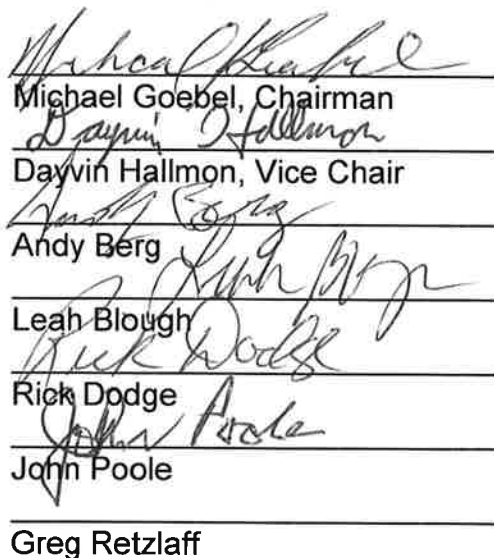 Michael Goebel
Michael Goebel, Chairman
Dayvin Hallmon
Dayvin Hallmon, Vice Chair
Andy Berg
Andy Berg
Leah Blough
Leah Blough
Rick Dodge
Rick Dodge
John Poole
John Poole
Greg Retzlaff